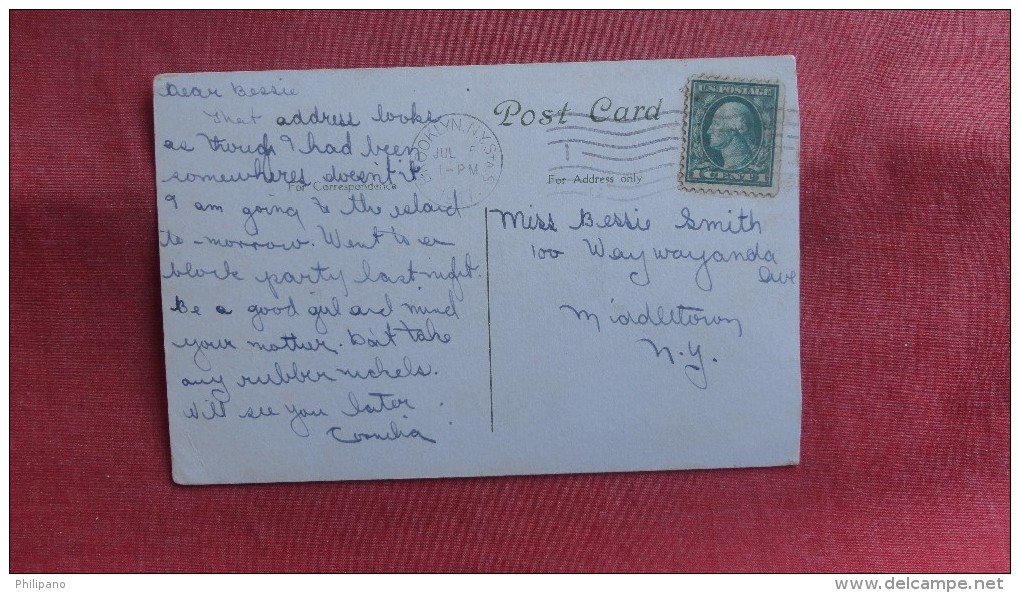 Dear Bessie
That address looks
as though I had been
somewheres doesn't it
I am going to the island
to-morrow. Went to a
block party last night.
Be a good girl and mind
your mother. Don't take
any rubber nickels.
Will see you later
Cornelia
For Correspondence
BROOKLYN, N.Y. STA
JUL
1-PM
Post Card
For Address only
U.S. POSTAGE
1 CENT 1
Miss Bessie Smith
100 Waywayanda
Ave
Middletown
N.Y.
Philipano
www.delcampe.net